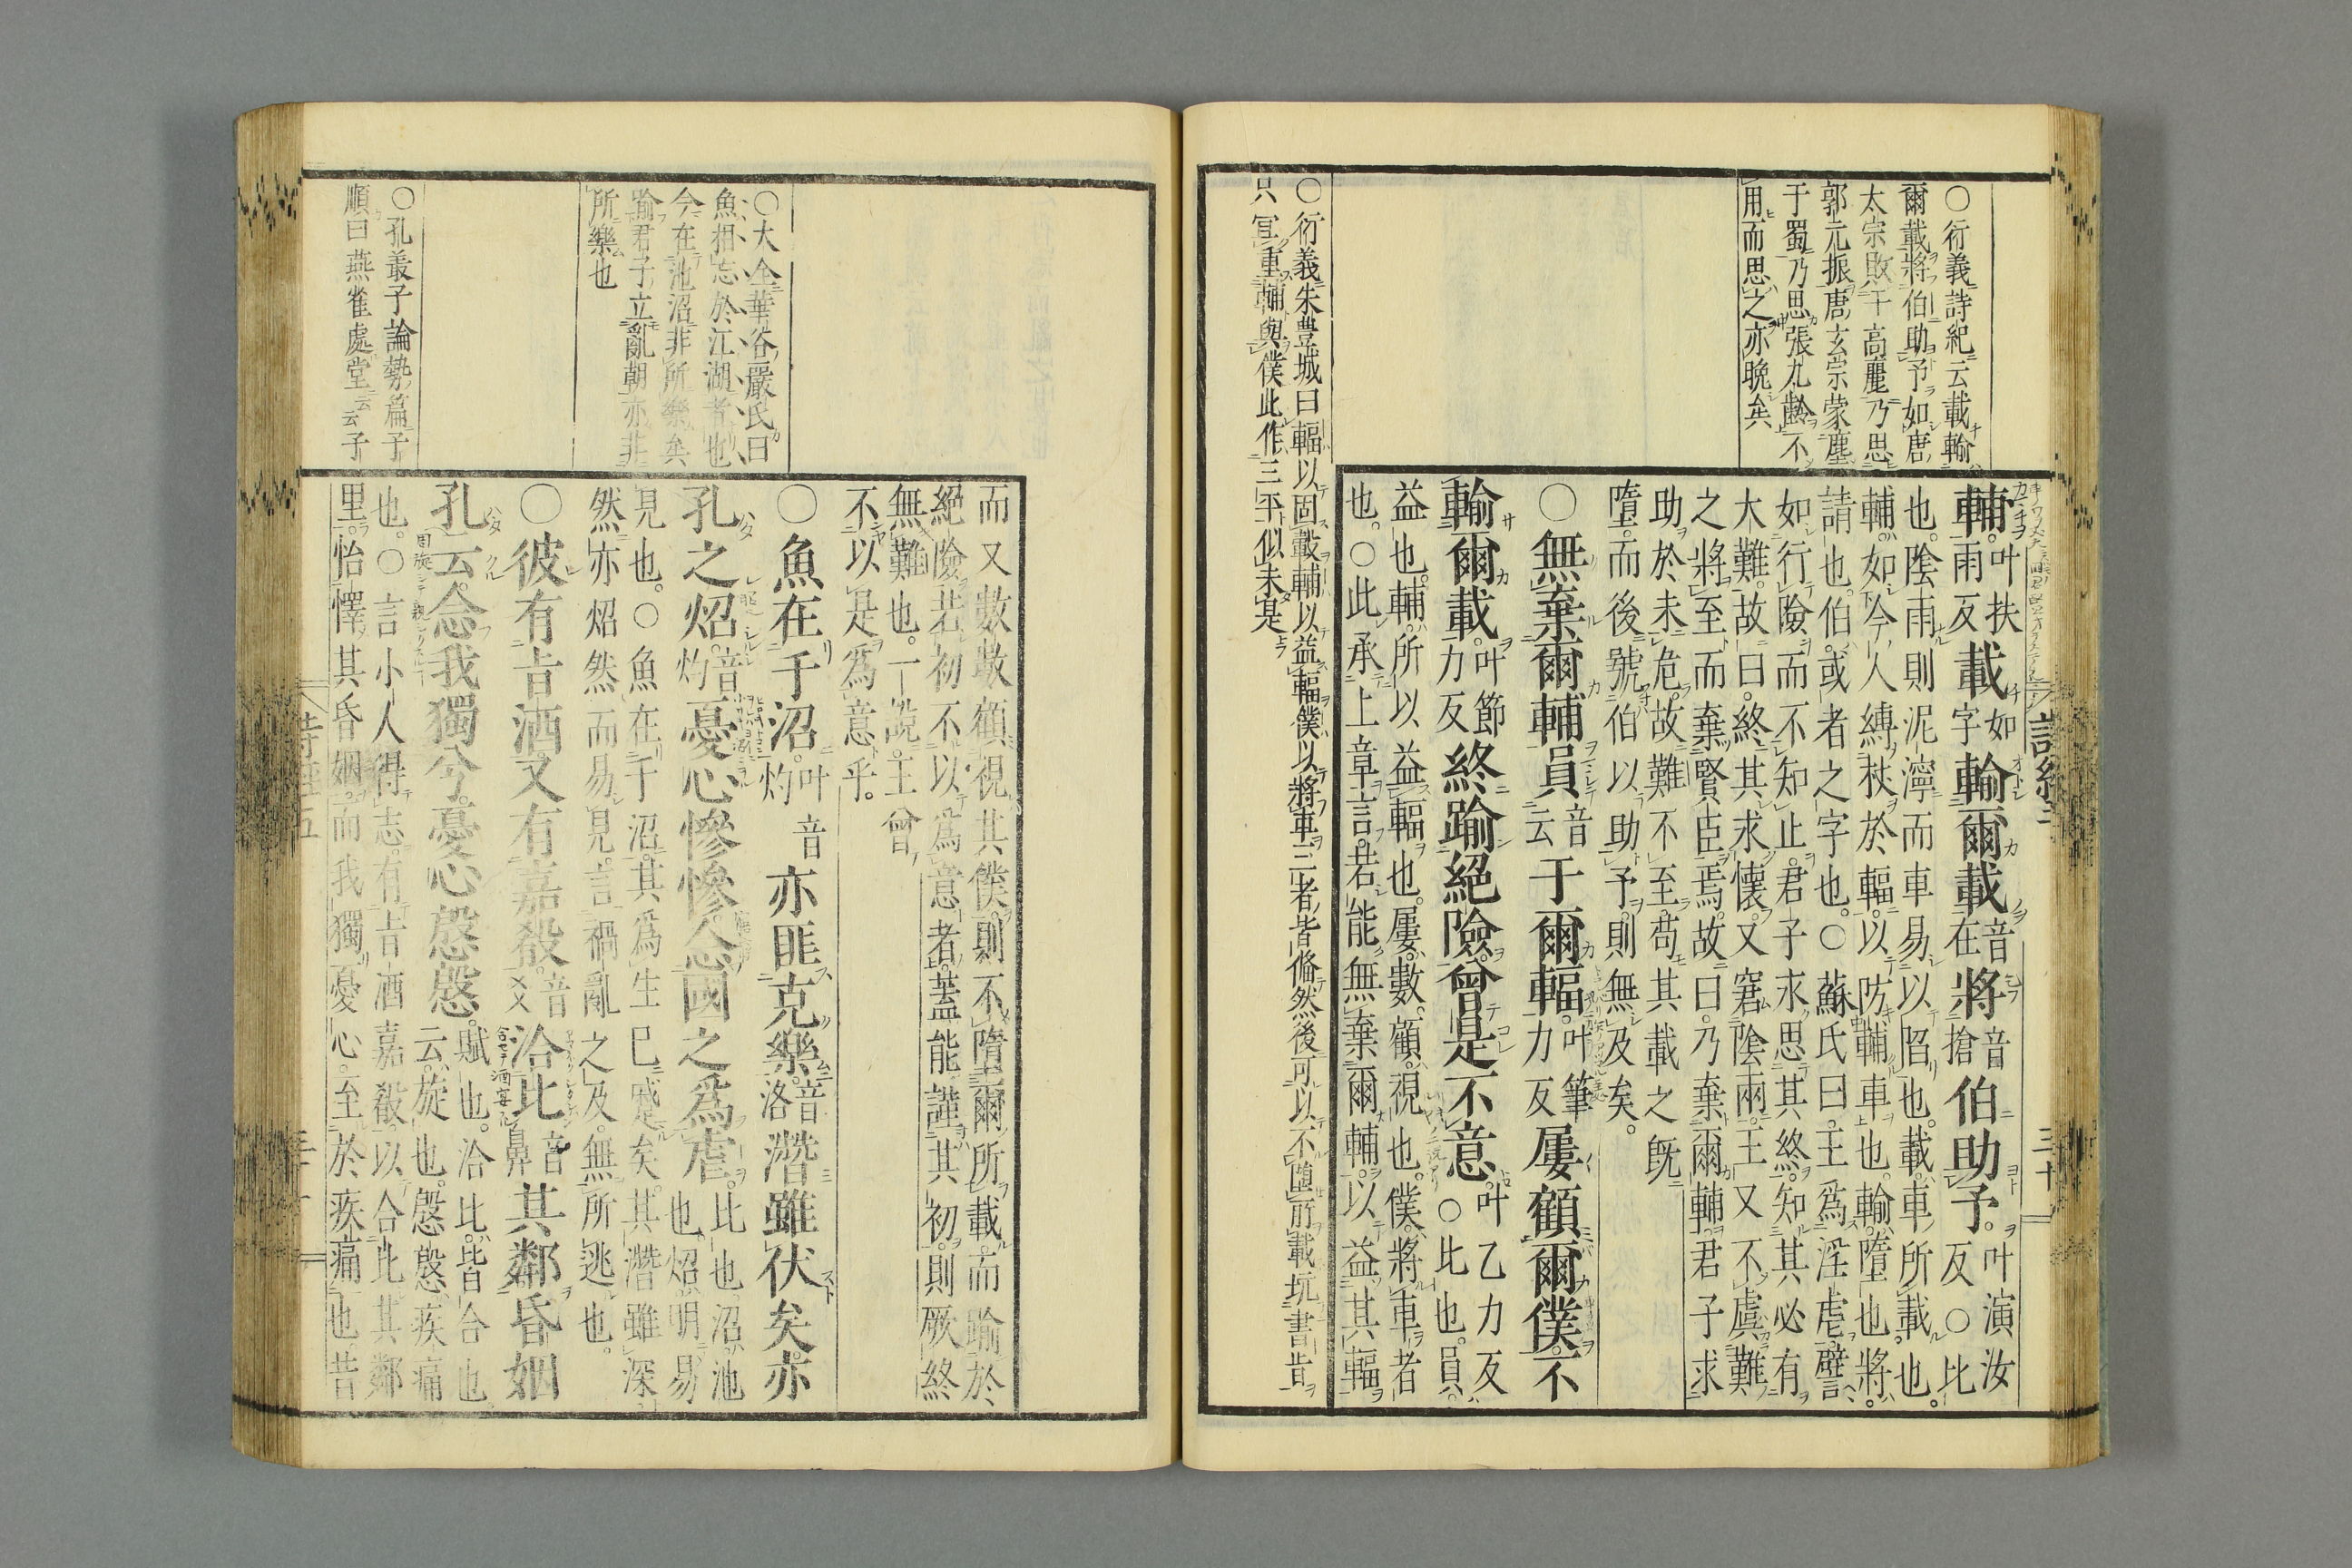 ○衍義詩紀云載輸
爾載將伯助予如唐
太宗敗于高麗乃思
郭元振唐玄宗蒙塵
于蜀乃思張九齡不
用而思之亦晩矣
輔叶扶雨反載如字輸爾載音在將音搶伯助予叶演汝反○比
也陰雨則泥濘而車易以陷也載車所載也
輔如今人縛杖於輻以防輔車也輸墮也將
請也伯或者之字也○蘇氏曰王爲淫虐譬
如行險而不知止君子求思其終知其必有
大難故曰終其求懷又窘陰雨王又不虞難
之將至而棄賢臣焉故曰乃棄爾輔君子求
助於未危故難不至苟其載之既
墮而後號伯以助予則無及矣
○無棄爾輔員音云于爾輻叶筆力反屢顧爾僕不
輸爾載叶節力反終踰絕險曾是不意叶乙力反○比也員
益也輔所以益輻也屢數顧視也僕將車者
也○此承上章言若能無棄爾輔以益其輻
○衍義朱豊城曰輻以固轂輔以益輻僕以將車三者皆脩然後可以不堕所載坑書昔
只宣重輔與僕此作三平似未是
而又數數顧視其僕則不墮爾所載而踰於
絕險若初不以爲意者蓋能謹其初則厥終
無難也一說王曾
不以是爲意乎
○大全華谷嚴氏曰
魚相忘於江湖者也
今在池沼非所樂矣
踰君子立亂朝亦非
所樂也
○魚在于沼叶音灼亦匪克樂音洛潛雖伏矣亦
孔之炤音灼憂心慘慘念國之爲虐比也沼池也炤明易
見也○魚在于沼其爲生已蹙矣其潛雖深
然亦炤然而易見言禍亂之及無所逃也
○彼有旨酒又有嘉殽音爻洽比音鼻其鄰昏姻
孔云念我獨兮憂心慇慇賦也洽比皆合也云旋也慇慇疾痛
也○言小人得志有旨酒嘉殽以合比其鄰
里怡懌其昏姻而我獨憂心至於疾痛也昔
○孔叢子論勢篇子
順曰燕雀處堂云云子